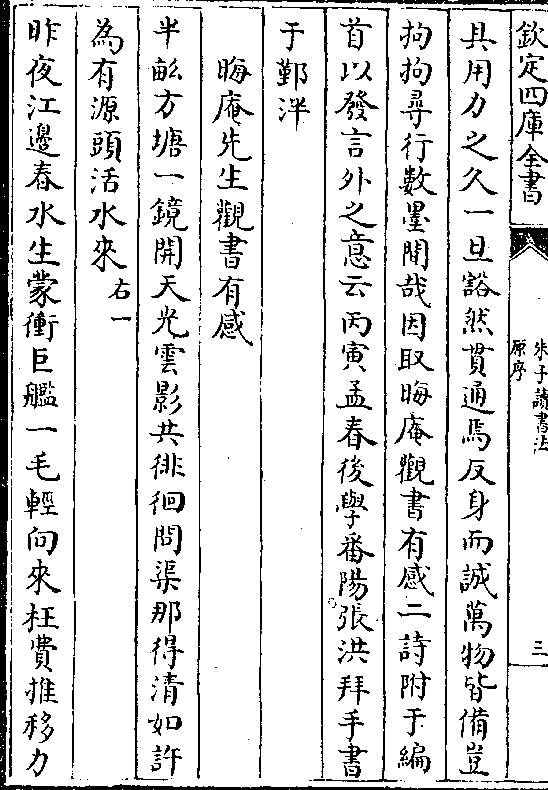 欽定四庫全書
朱子讀書法
原序
三
具用力之久一旦豁然貫通焉反身而誠萬物皆備豈
拘拘尋行數墨閒哉因取晦庵觀書有感二詩附于編
首以發言外之意云丙寅孟春後學番陽張洪拜手書
于鄞泮
晦庵先生觀書有感
半畝方塘一鏡開天光雲影共徘徊問渠那得清如許
為有源頭活水來右一
昨夜江邊春水生蒙衝巨艦一毛輕向來枉費推移力